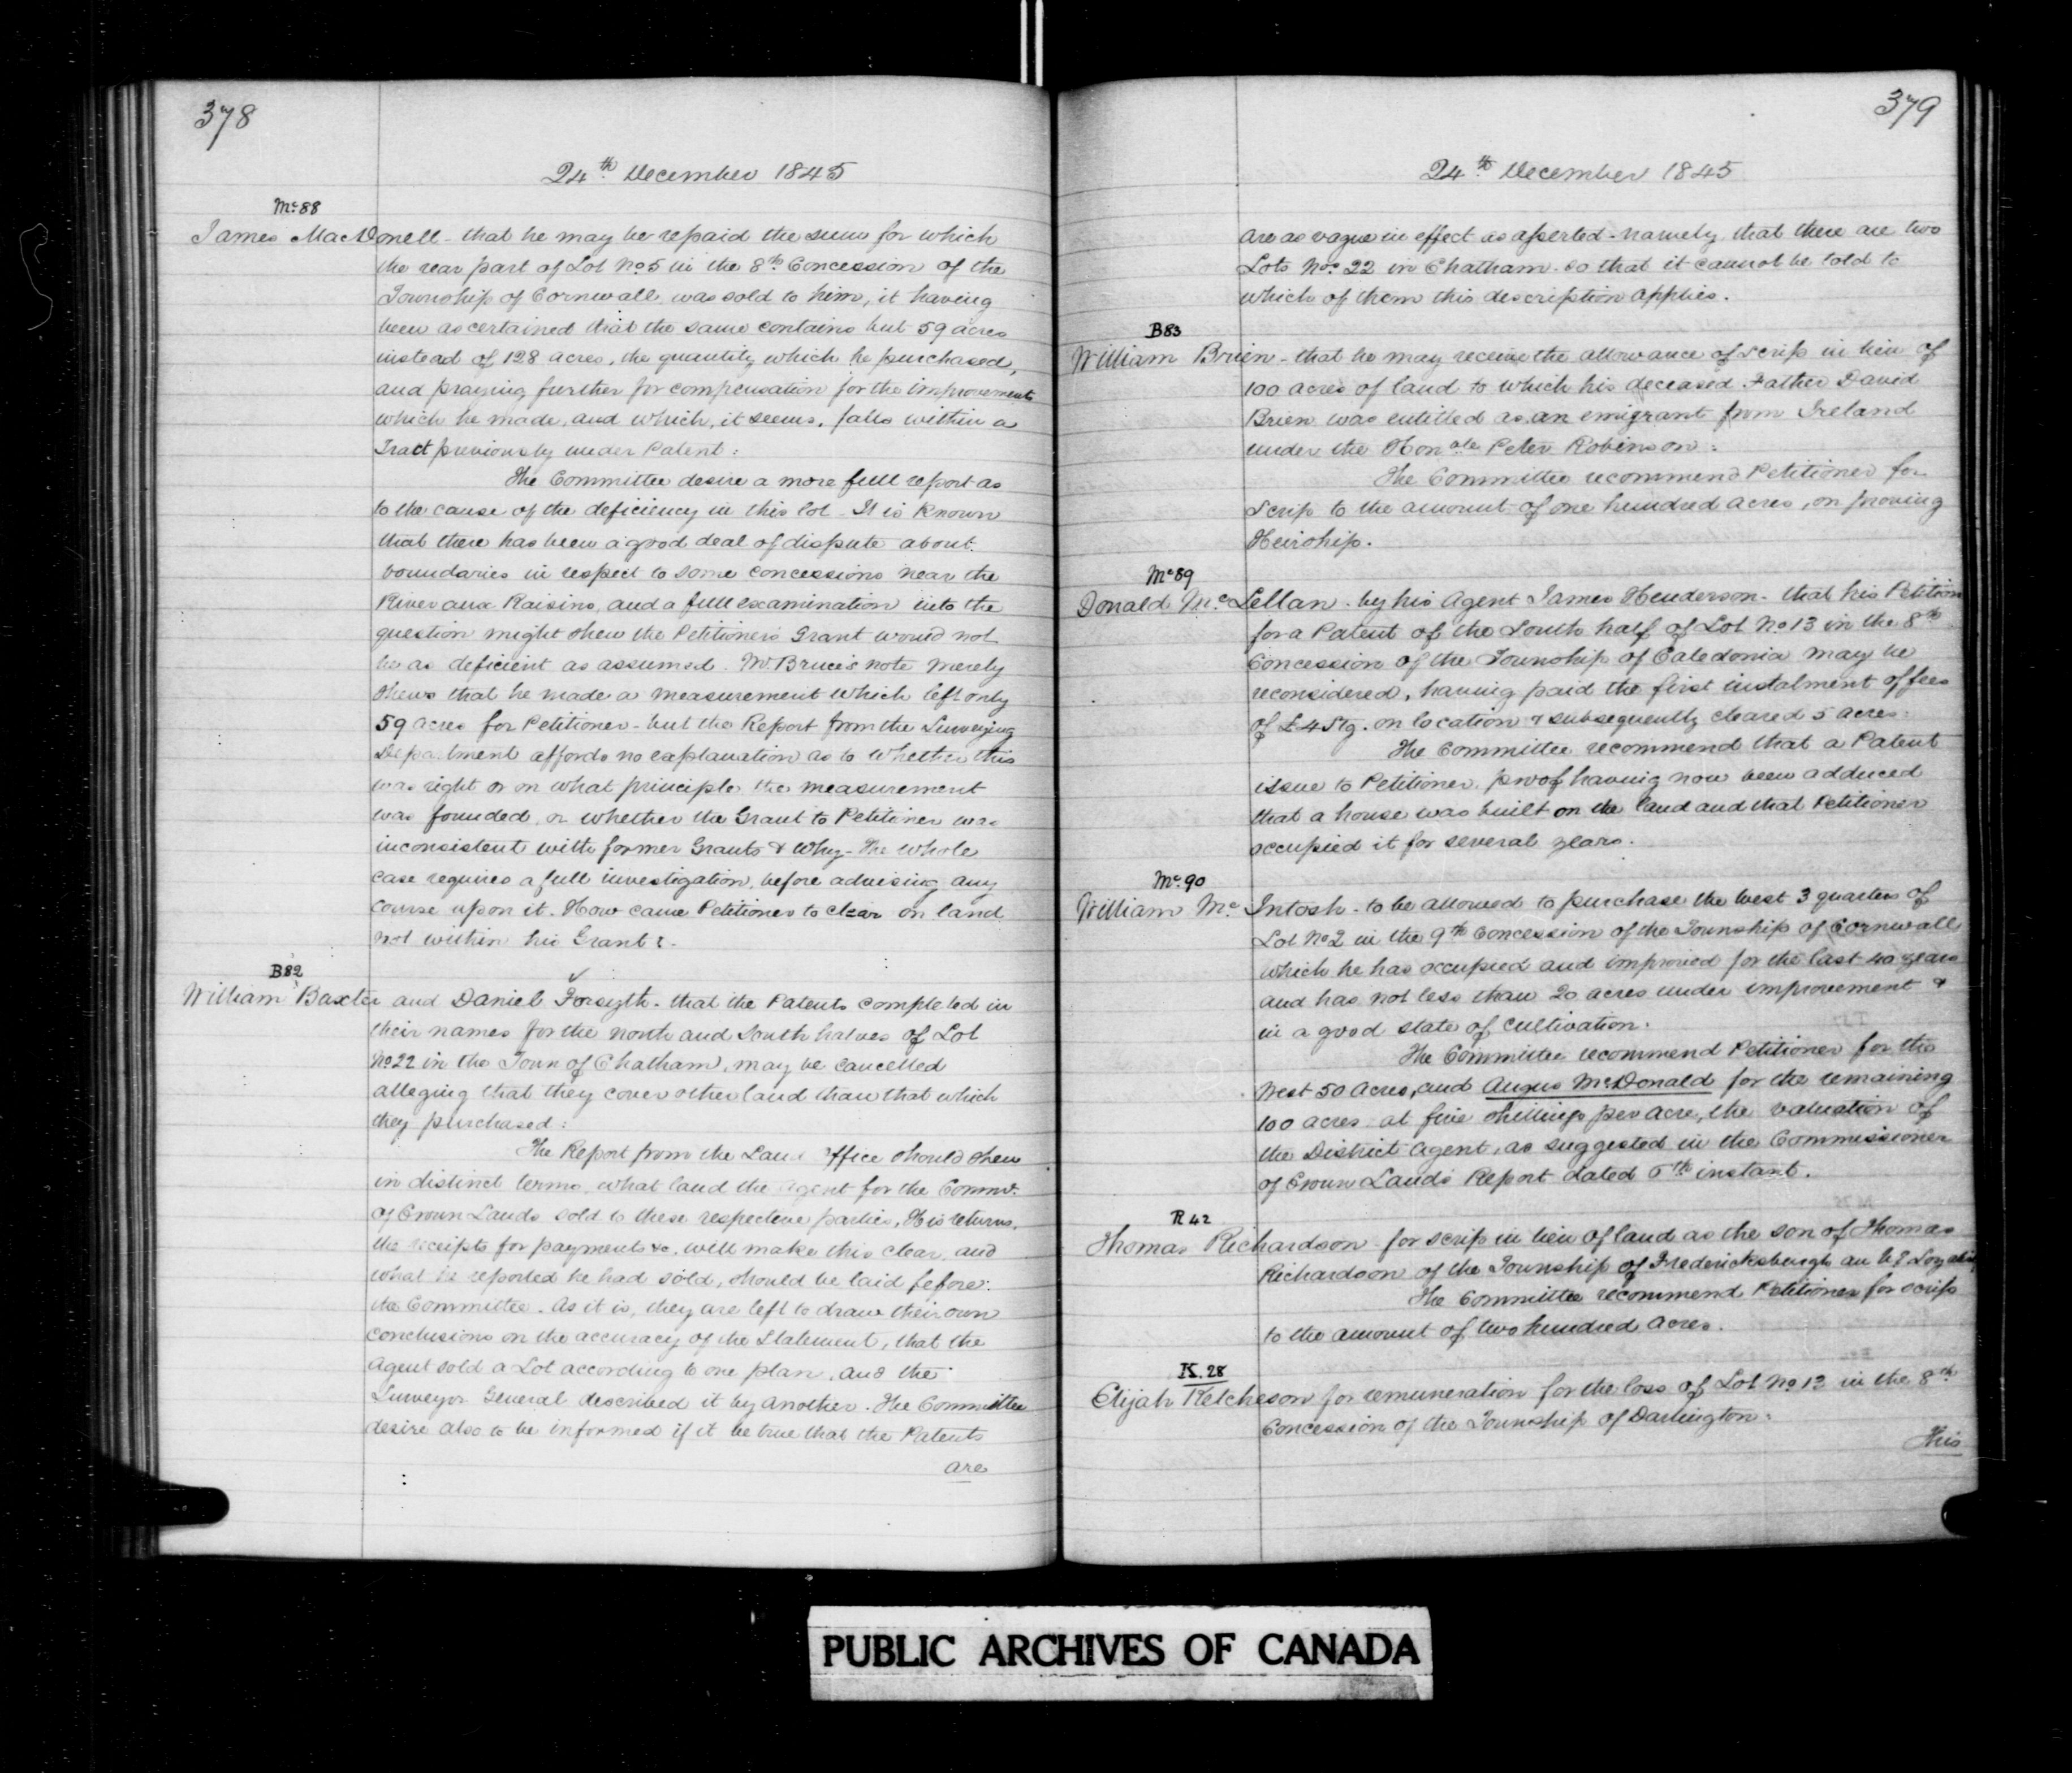 378
24th December 1845
Mc 88
James MacDonell - that he may be repaid the sum for which
the rear part of Lot No 5 in the 8th Concession of the
Township of Cornwall was sold to him, it having
been ascertained that the same contains but 59 acres
instead of 128 acres, the quantity which he purchased,
and praying further for compensation for the improvements
which he made, and which, it seems, falls within a
Tract previously under Patent:
The Committee desire a more full report as
to the cause of the deficiency in this lot. It is known
that there has been a good deal of dispute about
boundaries in respect to some concessions near the
River aux Raisins, and a full examination into the
question might shew the Petitioners Grant would not
be as deficient as assumed. Mr Bruce's note merely
shews that he made a measurement which left only
59 acres for Petitioner - but the Report from the Surveying
Department affords no explanation as to whether this
was right or on what principle the measurement
was founded, or whether the Grant to Petitioner was
inconsistent with former Grants & Why - The whole
case requires a full investigation, before advising any
course upon it. How came Petitioner to clear on land
not within his Grant?
B82
William Baxter and Daniel Forsyth - that the Patents completed in
their names for the north and South halves of Lot
No 22 in the Town of Chatham, may be cancelled
alleging that they cover other land than that which
they purchased:
The Report from the Land Office should shew
in distinct terms, what land the Agent for the Commr
of Crown Lands sold to these respective parties, His returns,
the receipts for payments &c, will make this clear, and
what he reported he had sold, should be laid before
the Committee. As it is, they are left to draw their own
conclusions on the accuracy of the Statement, that the
Agent sold a Lot according to one plan, and the
Surveyor General described it by another. The Committee
desire also to be informed if it be true that the Patents
are
379
24th December 1845
are as vague in effect as asserted - namely that there are two
Lots Nos 22 in Chatham - so that it cannot be told to
which of them this description applies.
B83
William Brien - that he may receive the allowance of scrip in lieu of
100 acres of land to which his deceased Father David
Brien was entitled as an emigrant from Ireland
under the Honble Peter Robinson:
The Committee recommend Petitioner for
scrip to the amount of one hundred acres, on proving
Heirship.
Mc 89
Donald McLellan - by his Agent James Henderson - that his Petition
for a Patent of the South half of Lot No 13 in the 8th
Concession of the Township of Caledonia may be
reconsidered, having paid the first instalment of fees
of £4 Stg. on location & subsequently cleared 5 acres:
The Committee recommend that a Patent
issue to Petitioner, proof having now been adduced
that a house was built on the land and that Petitioner
occupied it for several years.
Mc 90
William McIntosh - to be allowed to purchase the West 3 quarters of
Lot No 2 in the 9th Concession of the Township of Cornwall
which he has occupied and improved for the last 40 years
and has not less than 20 acres under improvement &
in a good state of cultivation:
The Committee recommend Petitioner for the
West 50 Acres, and Angus McDonald for the remaining
100 acres at five shillings per Acre, the valuation of
the District Agent, as suggested in the Commissioner
of Crown Lands Report dated 6th instant.
R 42
Thomas Richardson - for scrip in lieu of land as the son of Thomas
Richardson of the Township of Fredericksburgh an U.E. Loyalist
The Committee recommend Petitioner for scrip
to the amount of two hundred acres.
K. 28
Elijah Ketcheson for remuneration for the loss of Lot No 13 in the 8th
Concession of the Township of Darlington:
This
PUBLIC ARCHIVES OF CANADA